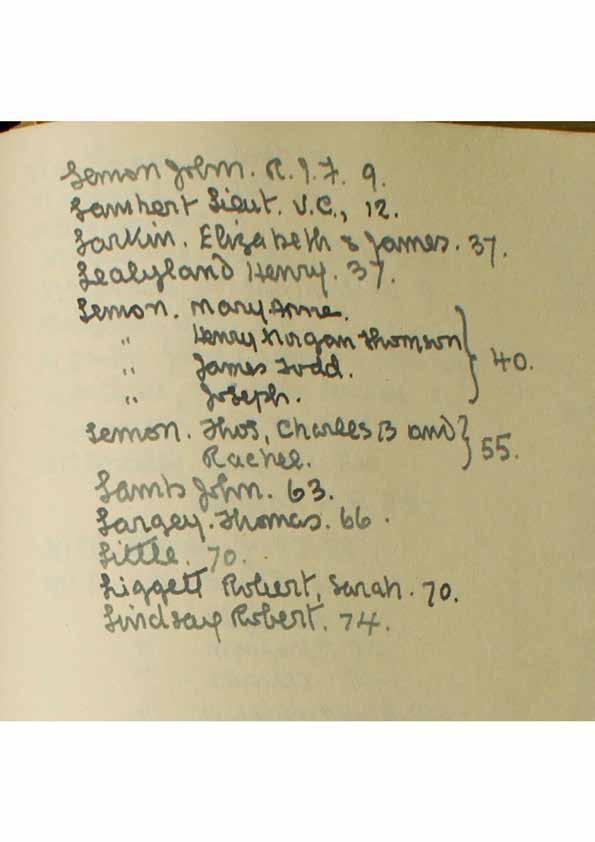 Lemon John. R.I.F. 9.
Lambert Lieut. V.C., 12.
Larkin. Elizabeth & James. 37.
Lealyland Henry. 37.
Lemon. Mary Anne.
" Henry Thomson
" James Todd. 40.
" Joseph.
Lemon. Thos, Charles B and
Rachel. 55.
Lamb John. 63.
Largey. Thomas. 66.
Little. 70.
Liggett Robert, Sarah. 70.
Lindsay Robert. 74.